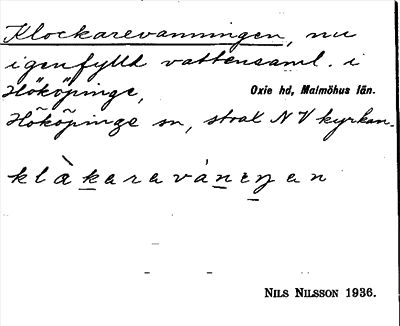 Klockarevanningen, nu
igenfylld vattensaml. i
Hököpinge, Oxie hd, Malmöhus län.
Hököpinge sn, strax NV kyrkan.
klàkaravániŋan
NILS NILSSON 1936.